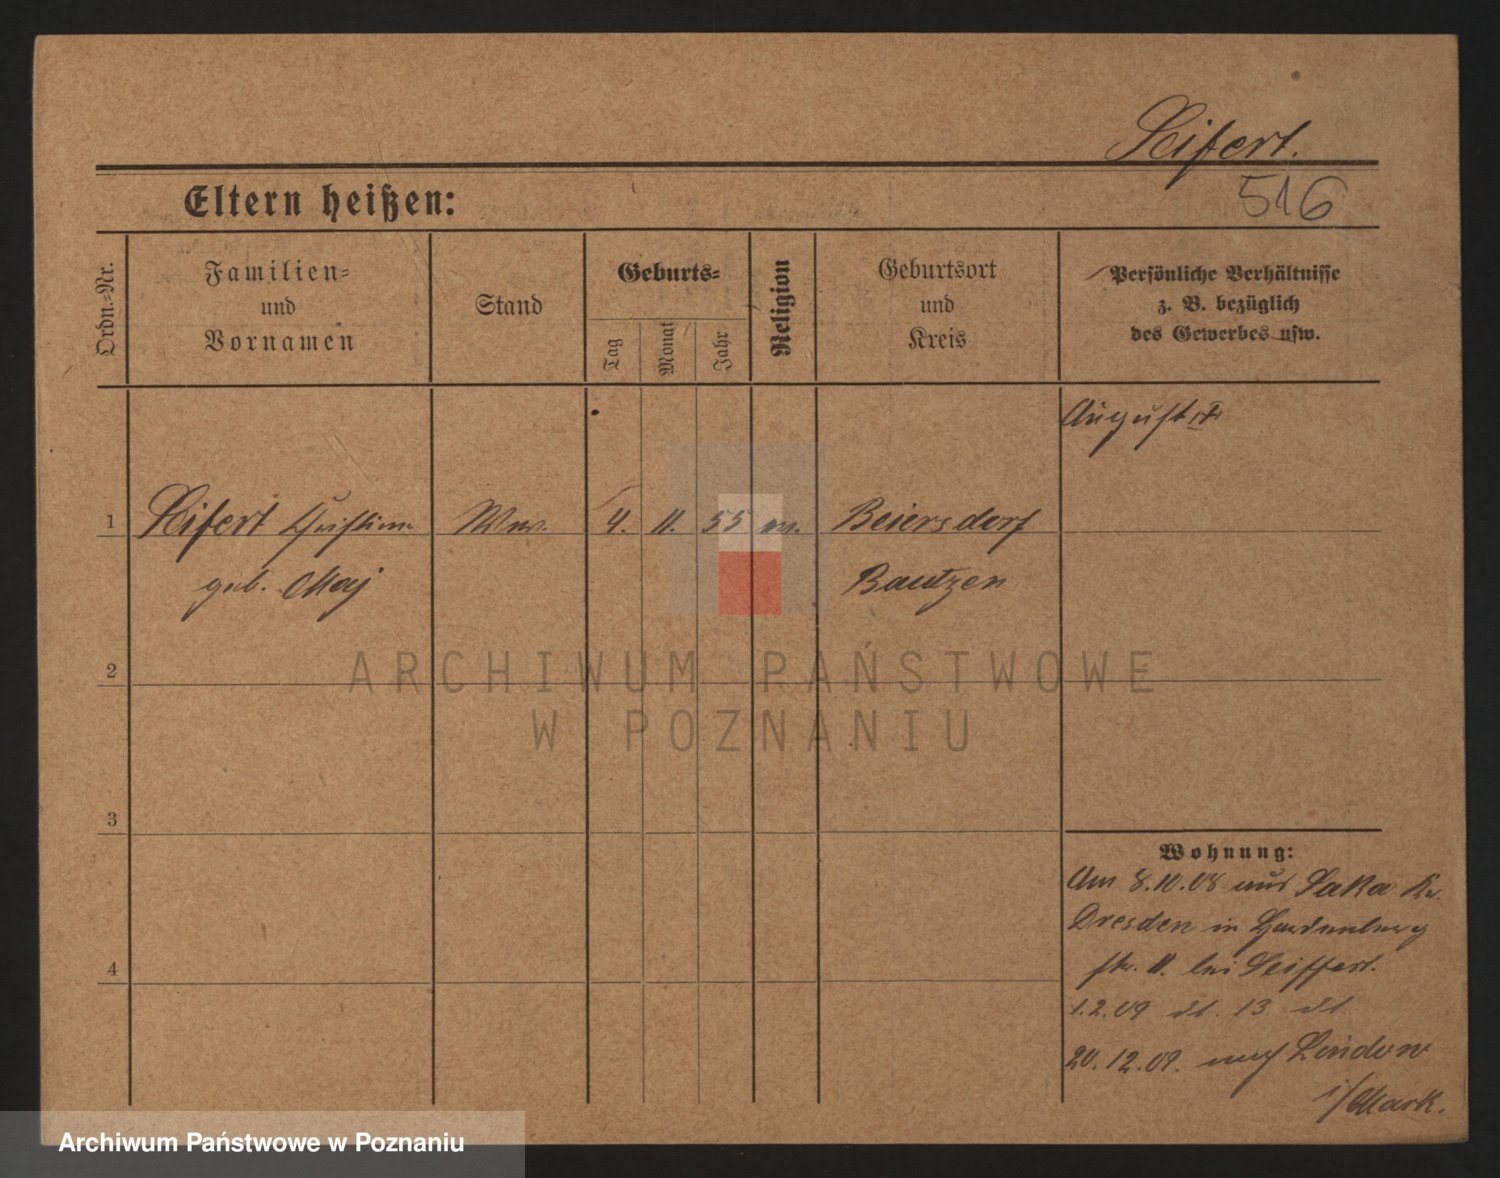 Seifert.
516
Eltern heißen:
Ordn.=Nr.
Familien=
und
Vornamen
Stand
Geburts=
Tag
Monat
Jahr
Religion
Geburtsort
und
Kreis
Persönliche Verhältnisse
z. B. bezüglich
des Gewerbes usw.
August
1
Seifert Christine
Ww.
4. 11. 55
ev.
Beiersdorf
geb. May
Bautzen
2
3
4
Wohnung:
Am 8.10.08 aus Saka Kr.
Dresden in Hardenberg
str. 11. bei Seiffert.
1.2.09 dt. 13 dt.
20.12.09. nach Lindow
i/Mark.
ARCHIWUM PAŃSTWOWE
W POZNANIU
Archiwum Państwowe w Poznaniu